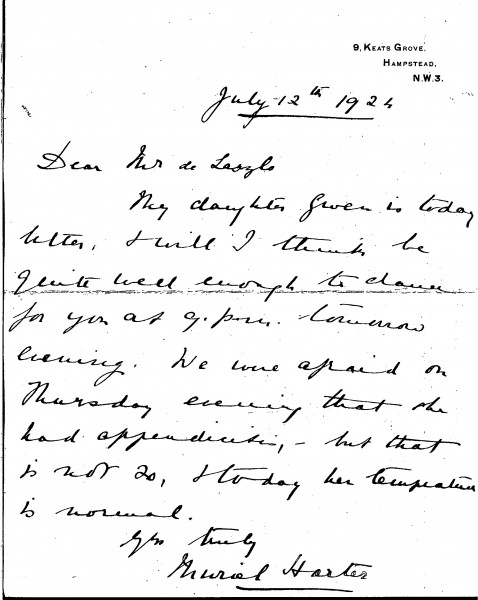 9, KEATS GROVE.
HAMPSTEAD.
N.W.3.
July 12th 1924
Dear Mr de Laszlo
My daughter Gwen is today
better, & will I think be
quite well enough to dance
for you at 9.p.m. tomorrow
evening. We were afraid on
Thursday evening that she
had appendicitis, - but that
is not so, & today her temperature
is normal.
Yrs truly
Muriel Harter